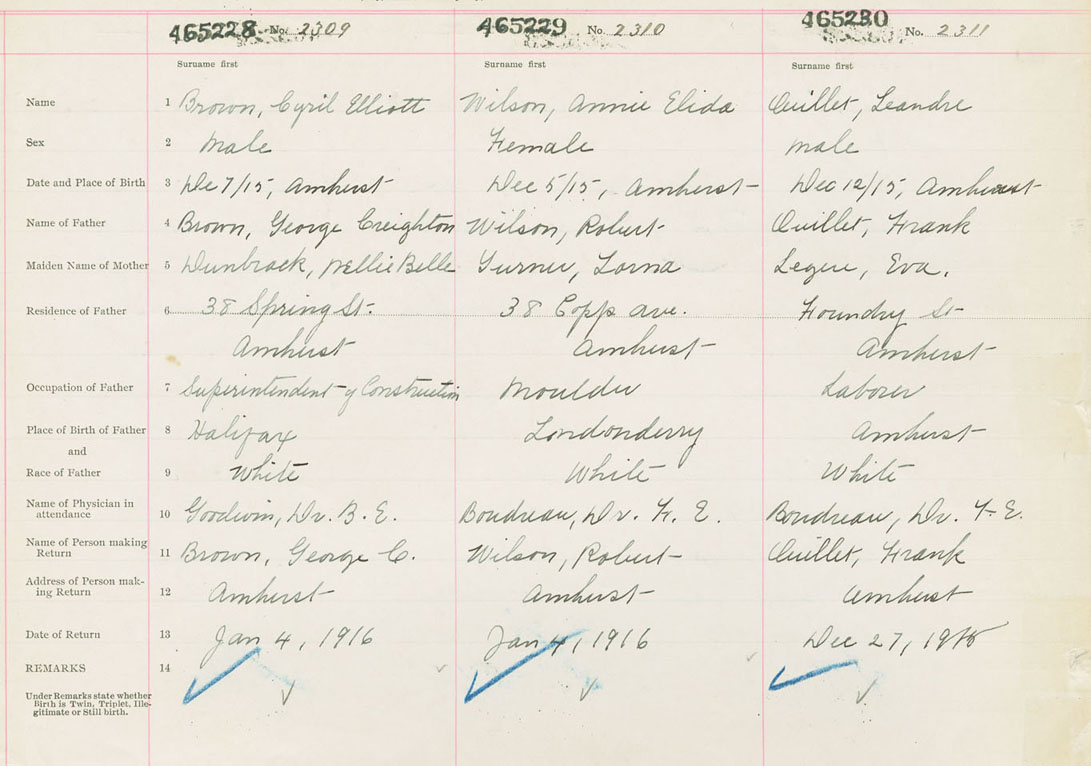 465228 No. 2309 465229 No. 2310 465230 No. 2311
Surname first Surname first Surname first
Name 1 Brown, Cyril Elliott Wilson, Annie Elida Ouillet, Leandre
Sex 2 Male Female Male
Date and Place of Birth 3 De 7/15, Amherst Dec 5/15, Amherst Dec 12/15, Amherst
Name of Father 4 Brown, George Creighton Wilson, Robert Ouillet, Frank
Maiden Name of Mother 5 Dunbrack, Nellie Belle Turner, Lorna Legere, Eva.
Residence of Father 6 38 Spring St. 38 Copp Ave. Foundry St
Amherst Amherst Amherst
Occupation of Father 7 Superintendent of Construction Moulder Laborer
Place of Birth of Father 8 Halifax Londonderry Amherst
and
Race of Father 9 White White White
Name of Physician in
attendance 10 Goodwin, Dr. B. E. Boudreau, Dr. F. E. Boudreau, Dr. F. E.
Name of Person making
Return 11 Brown, George C. Wilson, Robert Ouillet, Frank
Address of Person mak-
ing Return 12 Amherst Amherst Amherst
Date of Return 13 Jan 4, 1916 Jan 4, 1916 Dec 27, 1915
REMARKS 14
Under Remarks state whether
Birth is Twin, Triplet, Ille-
gitimate or Still birth.